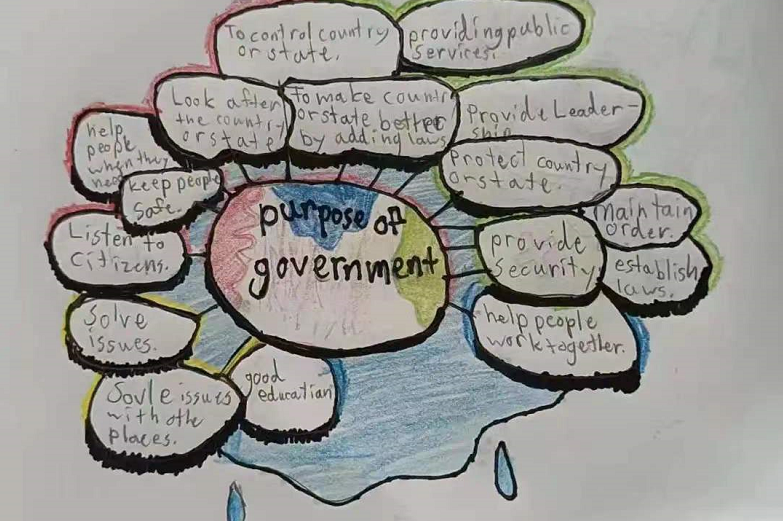 To control country
or state.
providing public
services.
Look after
the country
or state
To make countr
or state better
by adding laws
Provide Leader-
ship
help
people
when they
keep people
safe.
Protect country
or state.
Listen to
Citizens.
purpose of
government
maintain
order.
provide
security
establish
laws.
Solve
issues.
help people
work together.
good
education
Sovle issues
with othe
places.